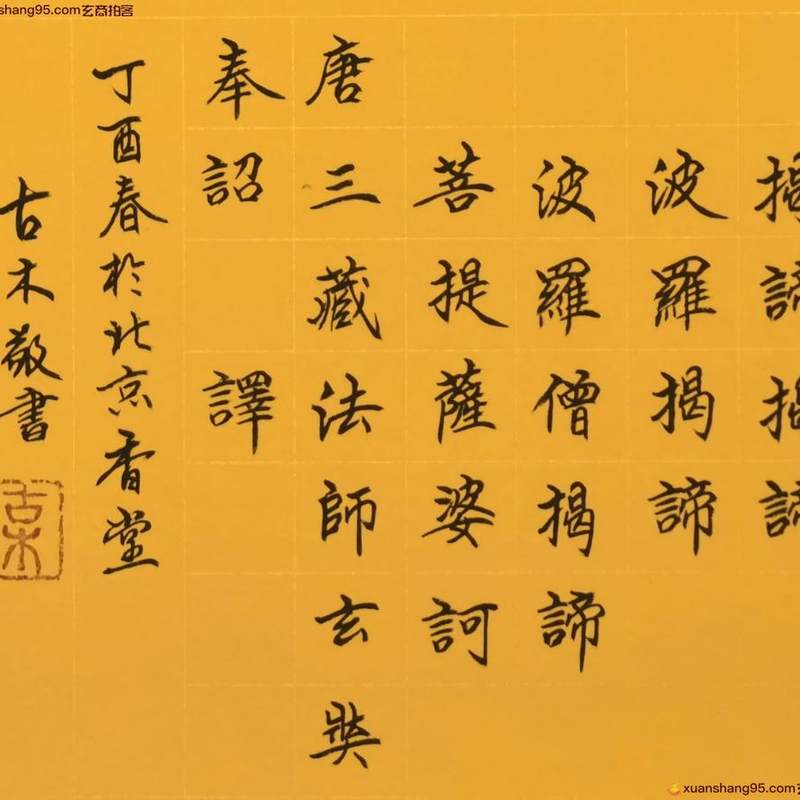 揭諦揭諦
波羅揭諦
波羅僧揭諦
菩提薩婆訶
唐三藏法師玄奘
奉詔譯
丁酉春於北京香堂
古木敬書
古木
shang95.com玄商拍客
xuanshang95.com玄